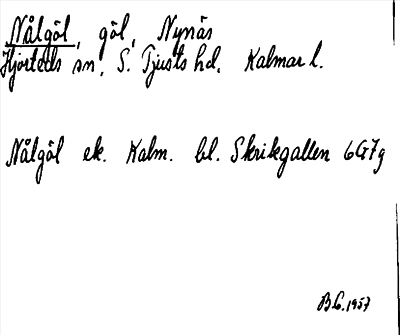 Nålgöl, göl, Nynäs
Hjorteds sn, S. Tjusts hd, Kalmar l.
Nålgöl ek. Kalm. bl. Skrikegallen 6G7g
B.C. 1957